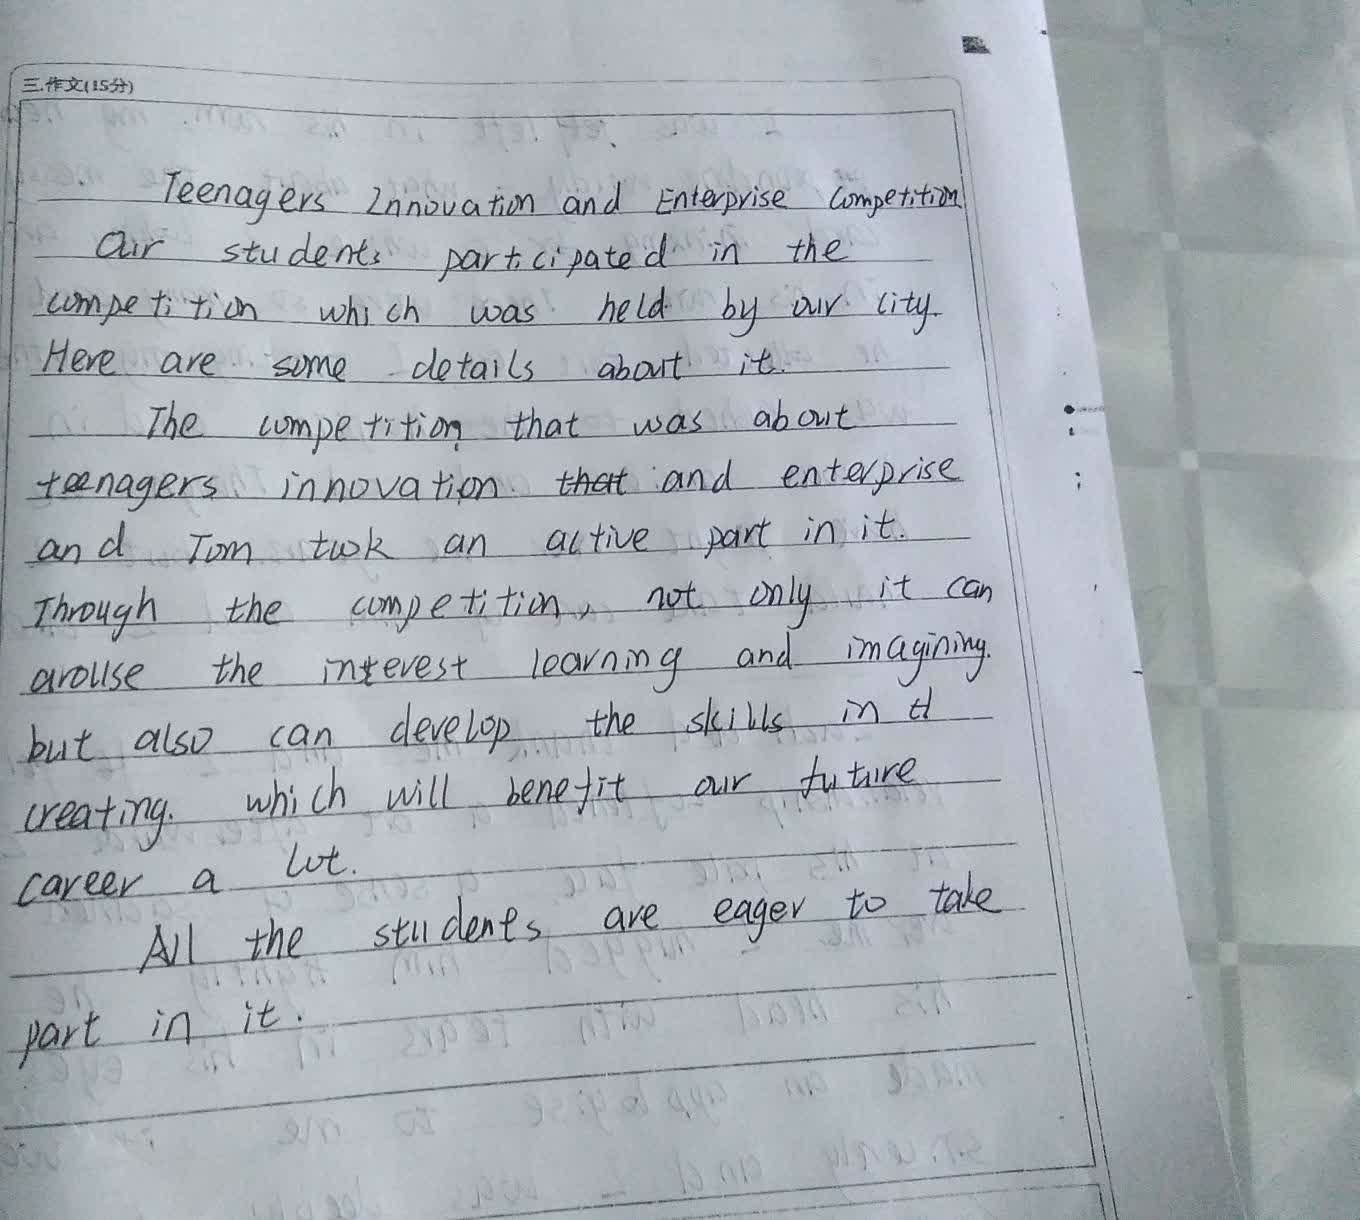 三.作文(15分)
Teenagers Innovation and Enterprise Competition
Our students participated in the
competition which was held by our city.
Here are some details about it.
The competition that was about
teenagers innovation that and enterprise
and Tom took an active part in it.
Through the competition, not only it can
arouse the interest learning and imagining.
but also can develop the skills in
creating. which will benefit our future
career a lot.
All the students are eager to take
part in it.